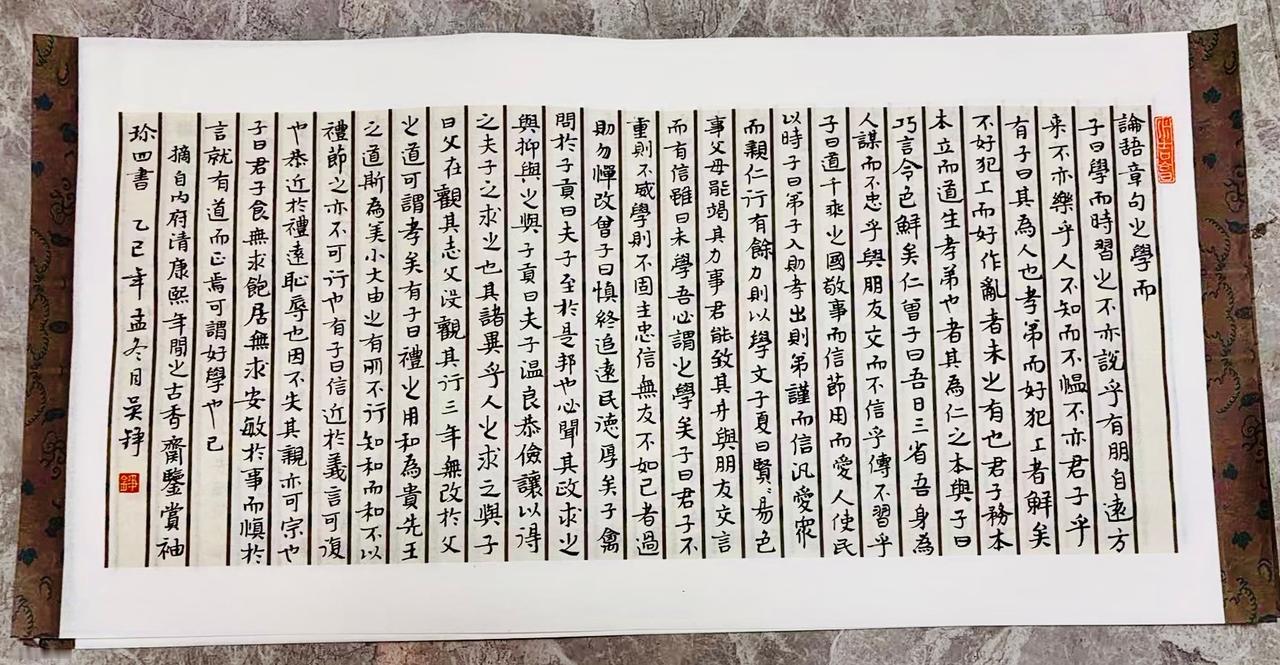 論語章句之學而
子曰學而時習之不亦說乎有朋自遠方
来不亦樂乎人不知而不愠不亦君子乎
有子曰其為人也孝弟而好犯上者鮮矣
不好犯上而好作亂者未之有也君子務本
本立而道生孝弟也者其為仁之本與子曰
巧言令色鮮矣仁曾子曰吾日三省吾身為
人謀而不忠乎與朋友交而不信乎傳不習乎
子曰道千乘之國敬事而信節用而愛人使民
以時子曰弟子入則孝出則弟謹而信汎愛眾
而親仁行有餘力則以學文子夏曰賢〻易色
事父母能竭其力事君能致其身與朋友交言
而有信雖曰未學吾必謂之學矣子曰君子不
重則不威學則不固主忠信無友不如己者過
則勿憚改曾子曰慎終追遠民德厚矣子禽
問於子貢曰夫子至於是邦也必聞其政求之
與抑與之與子貢曰夫子温良恭儉讓以得
之夫子之求之也其諸異乎人之求之與子
曰父在觀其志父没觀其行三年無改於父
之道可謂孝矣有子曰禮之用和為貴先王
之道斯為美小大由之有所不行知和而和不以
禮節之亦不可行也有子曰信近於義言可復
也恭近於禮遠恥辱也因不失其親亦可宗也
子曰君子食無求飽居無求安敏於事而慎於
言就有道而正焉可謂好學也已
摘自內府清康熙年間之古香齋鑒賞袖
珍四書 乙巳年孟冬月吳錚
錚